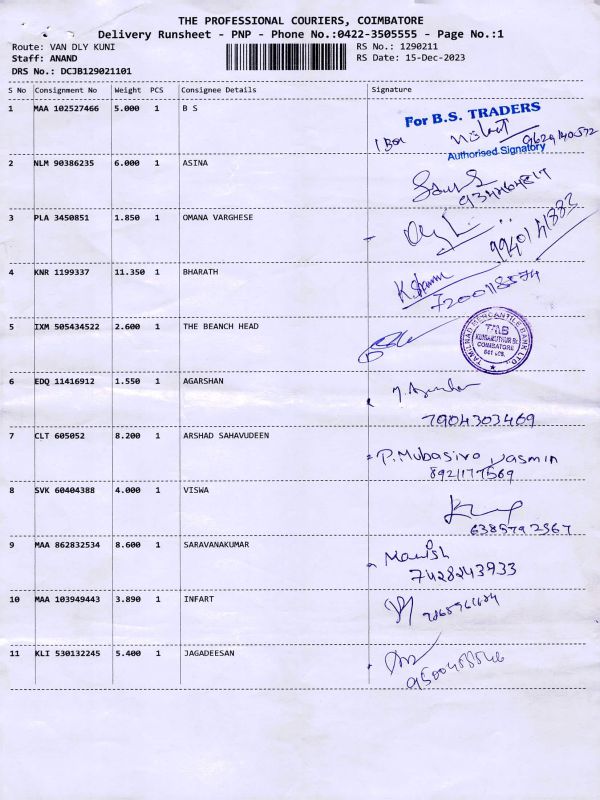 THE PROFESSIONAL COURIERS, COIMBATORE
Delivery Runsheet - PNP - Phone No.:0422-3505555 - Page No.:1
Route: VAN DLY KUNI RS No.: 1290211
Staff: ANAND RS Date: 15-Dec-2023
DRS No.: DCJB129021101
S No Consignment No Weight PCS Consignee Details Signature
1 MAA 102527466 5.000 1 B S
For B.S. TRADERS
1 Box
Authorised Signatory
2 NLM 90386235 6.000 1 ASINA
3 PLA 3450851 1.850 1 OMANA VARGHESE
4 KNR 1199337 11.350 1 BHARATH
7200118574
5 IXM 505434522 2.600 1 THE BEANCH HEAD
TAMILNAD MERCANTILE BANK LTD.
COIMBATORE
6 EDQ 11416912 1.550 1 AGARSHAN
7904303469
7 CLT 605052 8.200 1 ARSHAD SAHAVUDEEN
P. Yasmin
8921177569
8 SVK 60404388 4.000 1 VISWA
6385792567
9 MAA 862832534 8.600 1 SARAVANAKUMAR
Manish
7428243933
10 MAA 103949443 3.890 1 INFART
11 KLI 530132245 5.400 1 JAGADEESAN